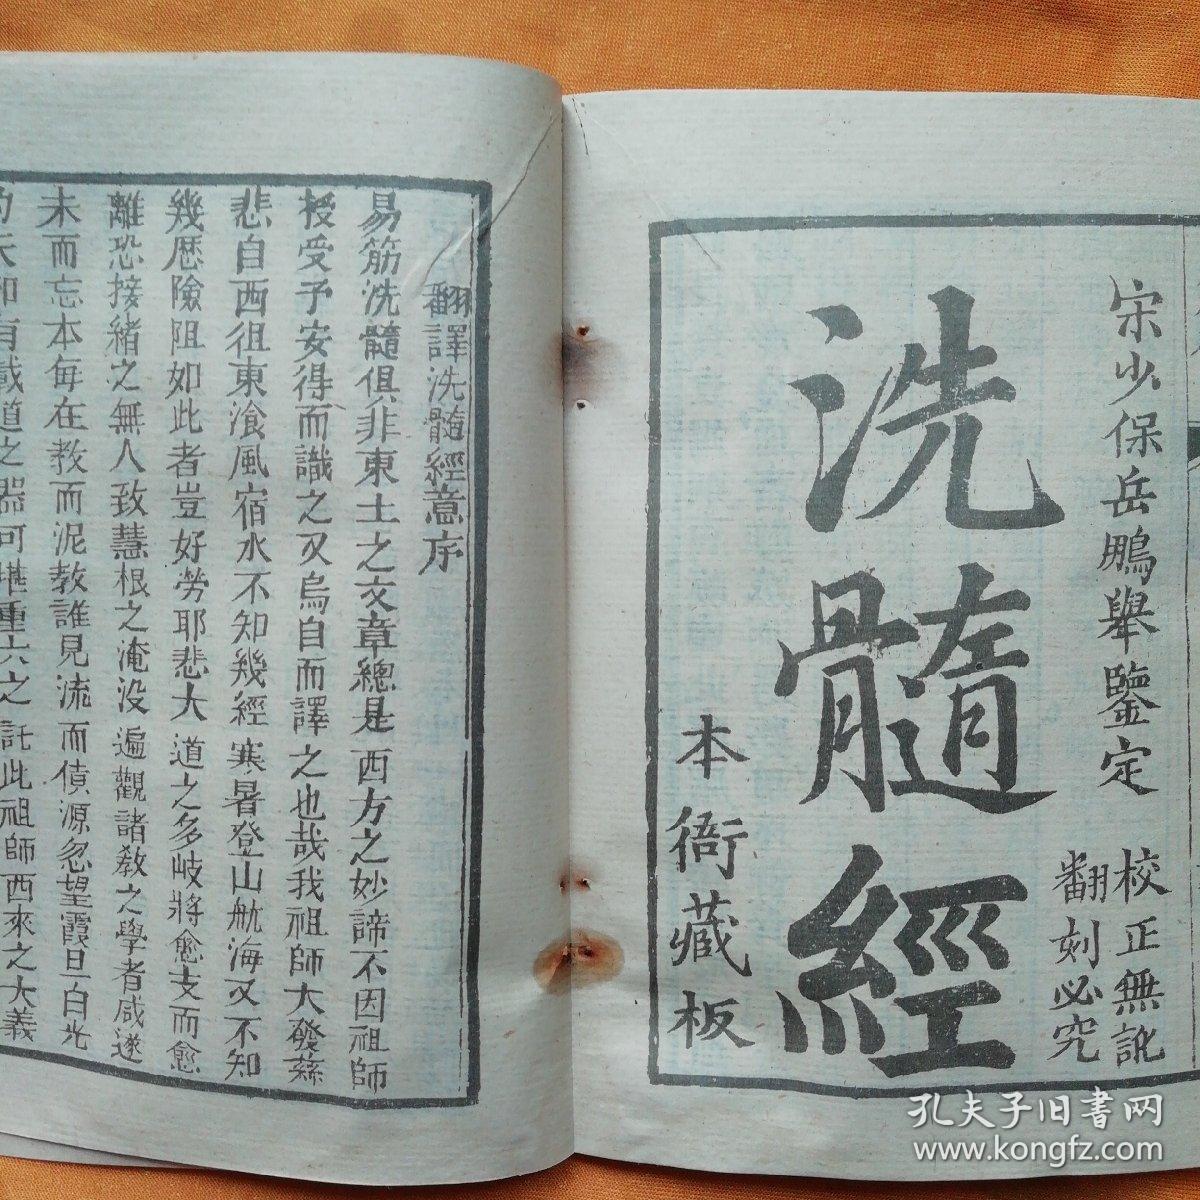 宋少保岳鵬舉鑒定
校正無訛
翻刻必究
洗髓經
本衙藏板
翻譯洗髓經意序
易筋洗髓俱非東土之文章總是西方之妙諦不因祖師
授受予安得而識之又烏自而譯之也哉我祖師大發慈
悲自西徂東飡風宿水不知幾經寒暑登山航海又不知
幾歷險阻如此者豈好勞耶悲大道之多岐將愈支而愈
離恐接緒之無人致慧根之淹没遍觀諸教之學者咸遂
末而忘本每在教而泥教誰見流而倩源忽望霞旦白光
大和有載道之器可堪重六之託此祖師西來之大義
孔夫子旧书网
www.kongfz.com